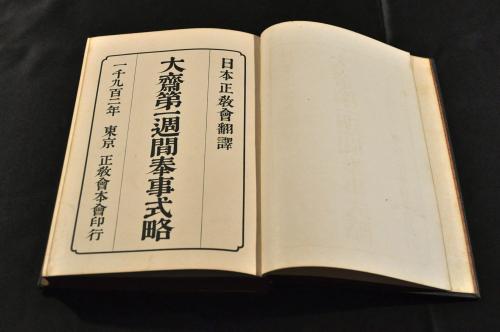 日本正敎會翻譯
大齋第一週間奉事式略
一千九百二年 東京 正敎會本會印行